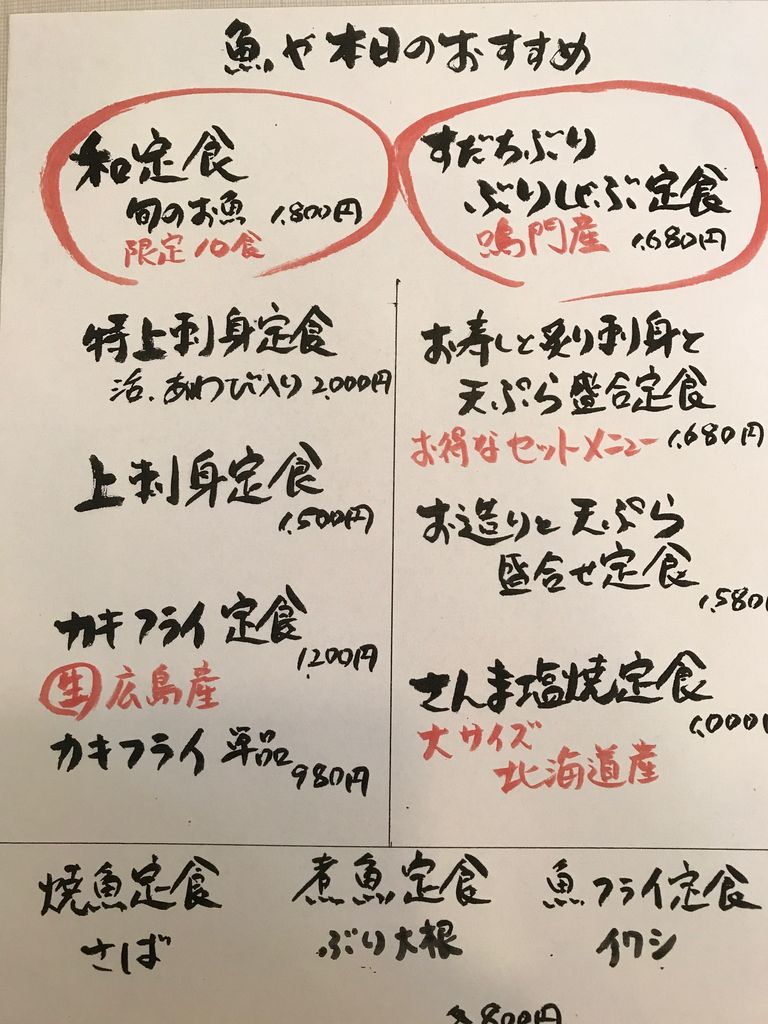 魚や本日のおすすめ
和定食
旬のお魚 1,800円
限定10食
特上刺身定食
活.あわび入り 2,000円
上刺身定食
1,500円
カキフライ定食
1,200円
生 広島産
カキフライ 単品
980円
すだちぶり
ぶりしゃぶ定食
鳴門産 1,680円
お寿しと炙り刺身と
天ぷら盛合定食
お得なセットメニュー 1,680円
お造りと天ぷら
盛合せ定食
1,580
さんま塩焼定食
1,000円
大サイズ
北海道産
焼魚定食
さば
煮魚定食
ぶり大根
魚フライ定食
イワシ
800円